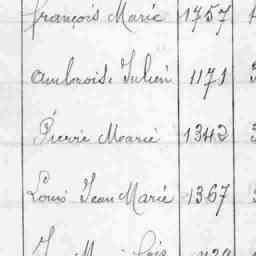 françois Marie 1757
Ambrois. Julien 1171
Pierre Marie 1342
Louis Jean Marie 1367